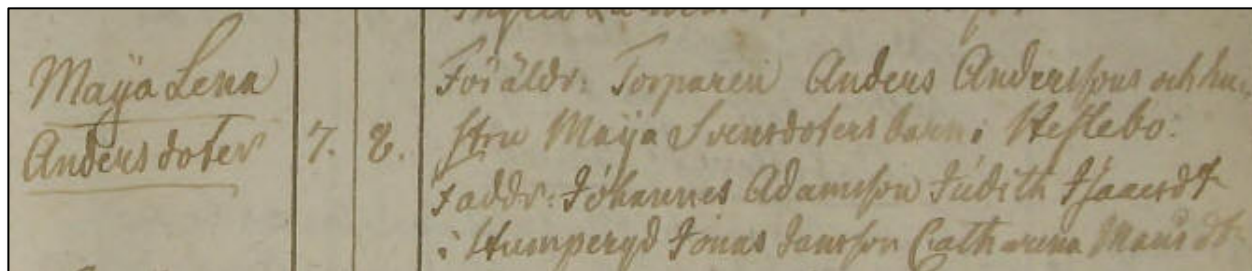 Maÿa Lena
Andersdoter
7. 8.
Föräldr: Torparen Anders Anderssons och hu-
stru Maÿa Svensdoters barn i
Faddr: Johannes Adamsson Judith Isaacsdt
i Humperyd Jonas Jansson Catharina Månsdt